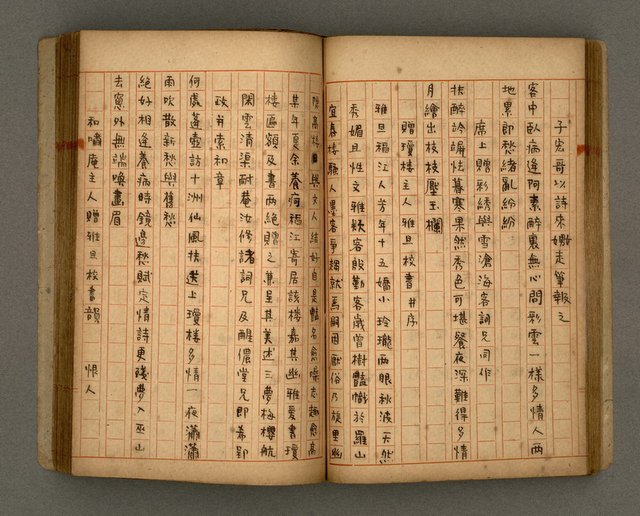 子宏哥以詩來嬲走筆報之
客中臥病逢阿素醉裏無心問彩雲一樣多情人兩
地累即愁緒亂紛紛
席上贈彩綉與雪滄海客詞兄同作
扶醉吟謳怯暮寒果然秀色可堪餐夜深難得多情
月繪出枝枝壓玉欄
贈瓊樓主人雅旦校書并序
雅旦福江人芳年十五嬌小玲瓏兩眼秋波天然
秀媚且性文雅疑客殷勤客歲曾樹豔幟於羅山
宜春樓騷人墨客爭趨就焉嗣因厭俗乃旋里幽
高樓與文人結好自是豔名愈噪志趣愈高
某年夏余養疴福江寄居該樓嘉其幽雅爰書瓊
樓匾額及書兩絕贈之兼呈其美述三夢梅櫻航
閑雲清渠耐菴汝修諸詞兄及醒儂堂兄即希郢
政并索和章
何處蓬壺訪十洲仙風扶送上瓊樓多情一夜瀟瀟
雨吹散新愁與舊愁
絕好相逢養病時鏡邊愁賦定情詩更殘夢入巫山
去窓外無端喚畫眉
和嘯庵主人贈雅旦校書韻 恨人